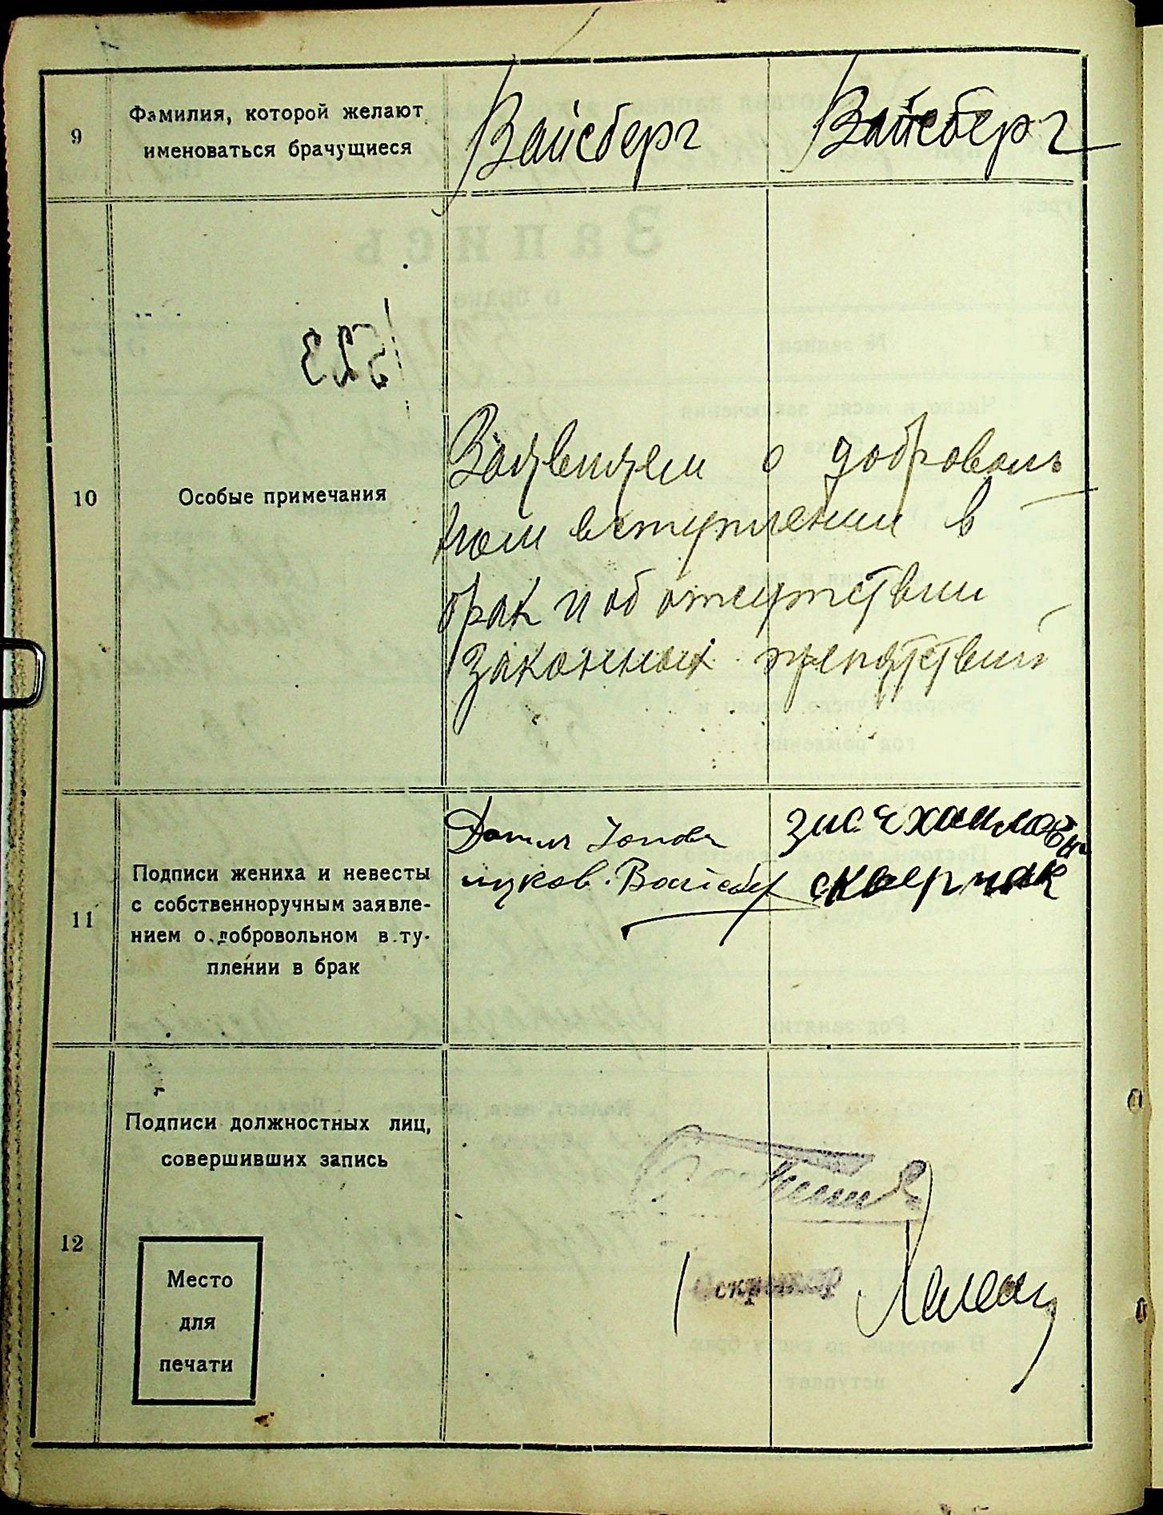 9
Фамилия, которой желают
именоваться брачущиеся
Вайсберг
Вайсберг
10
Особые примечания
Заявляем о доброволь
ном вступлении в
брак и об отсутствии
законных препятствий
11
Подписи жениха и невесты
с собственноручным заявле-
нием о добровольном в.ту-
плении в брак
скверчак
12
Подписи должностных лиц,
совершивших запись
Место
для
печати